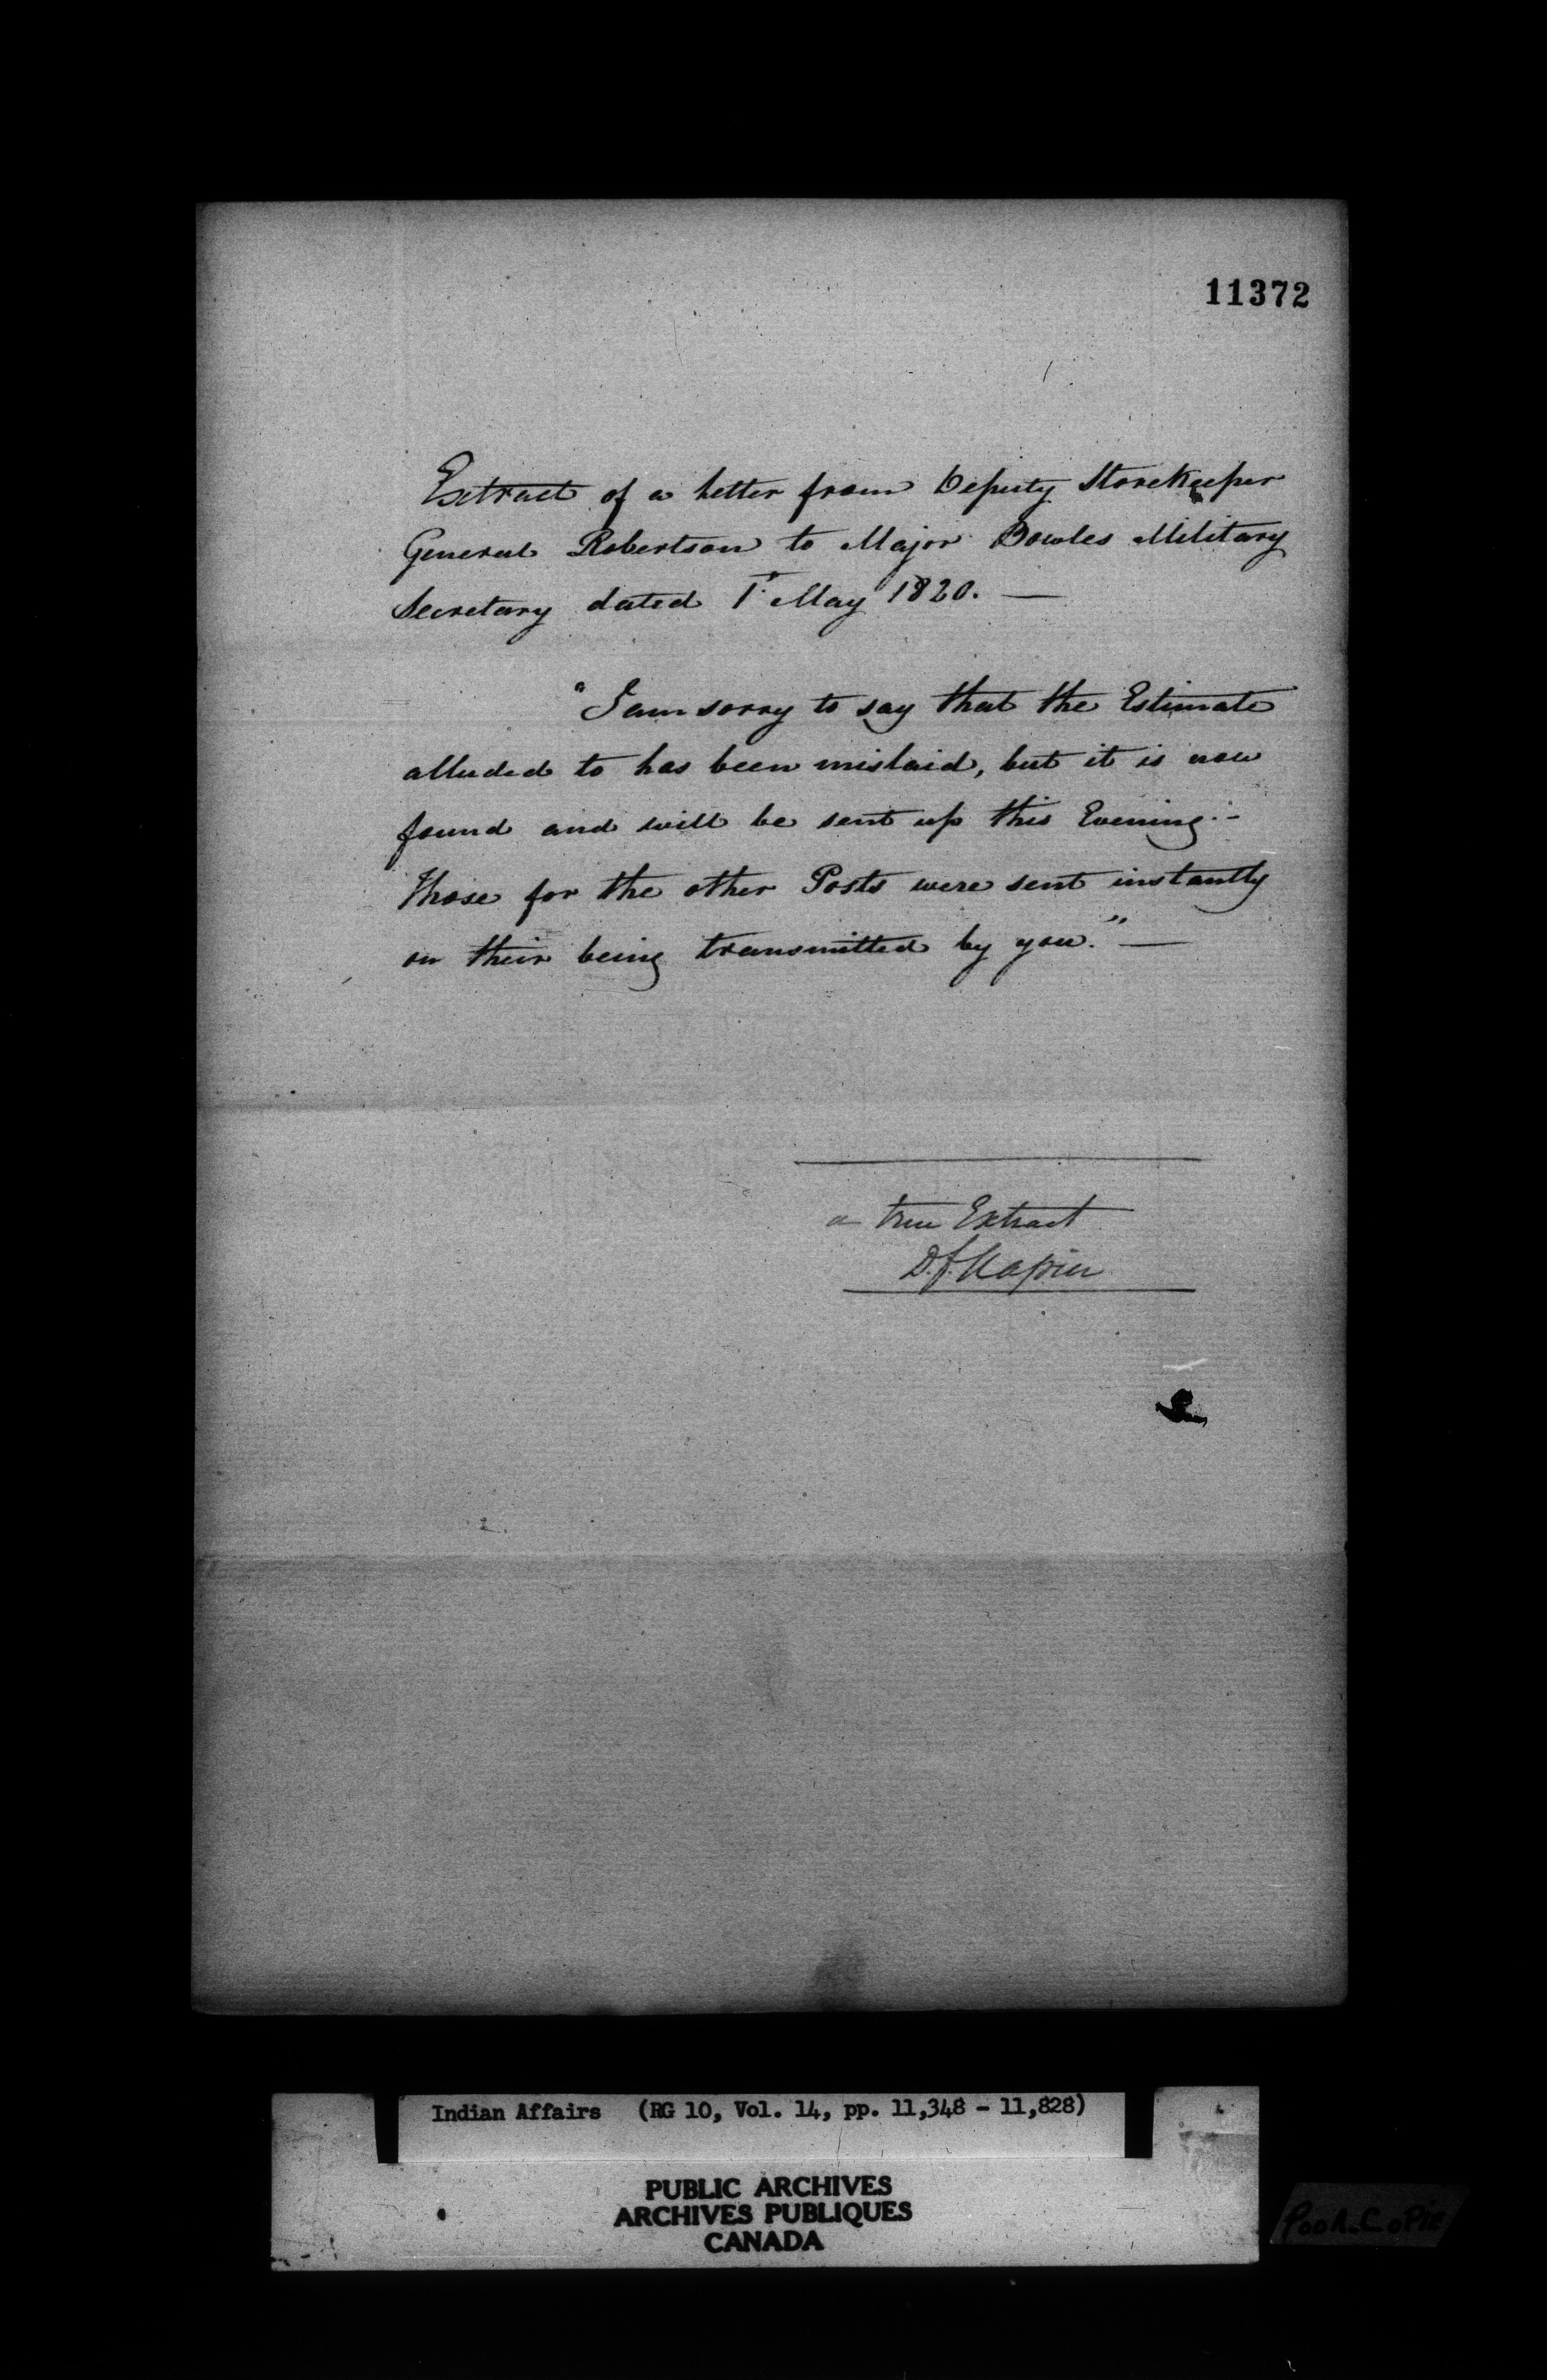 11372
Extract of a Letter from Deputy Storekeeper
General Robertson to Major Bowles Military
Secretary dated 1st May 1820. —
"I am sorry to say that the Estimate
alluded to has been mislaid, but it is now
found and will be sent up this Evening. -
Those for the other Posts were sent instantly
on their being transmitted by you." —
a true Extract
D.f. Napier
Indian Affairs (RG 10, Vol. 14, pp. 11,348 - 11,828)
PUBLIC ARCHIVES
ARCHIVES PUBLIQUES
CANADA
Poor Copie